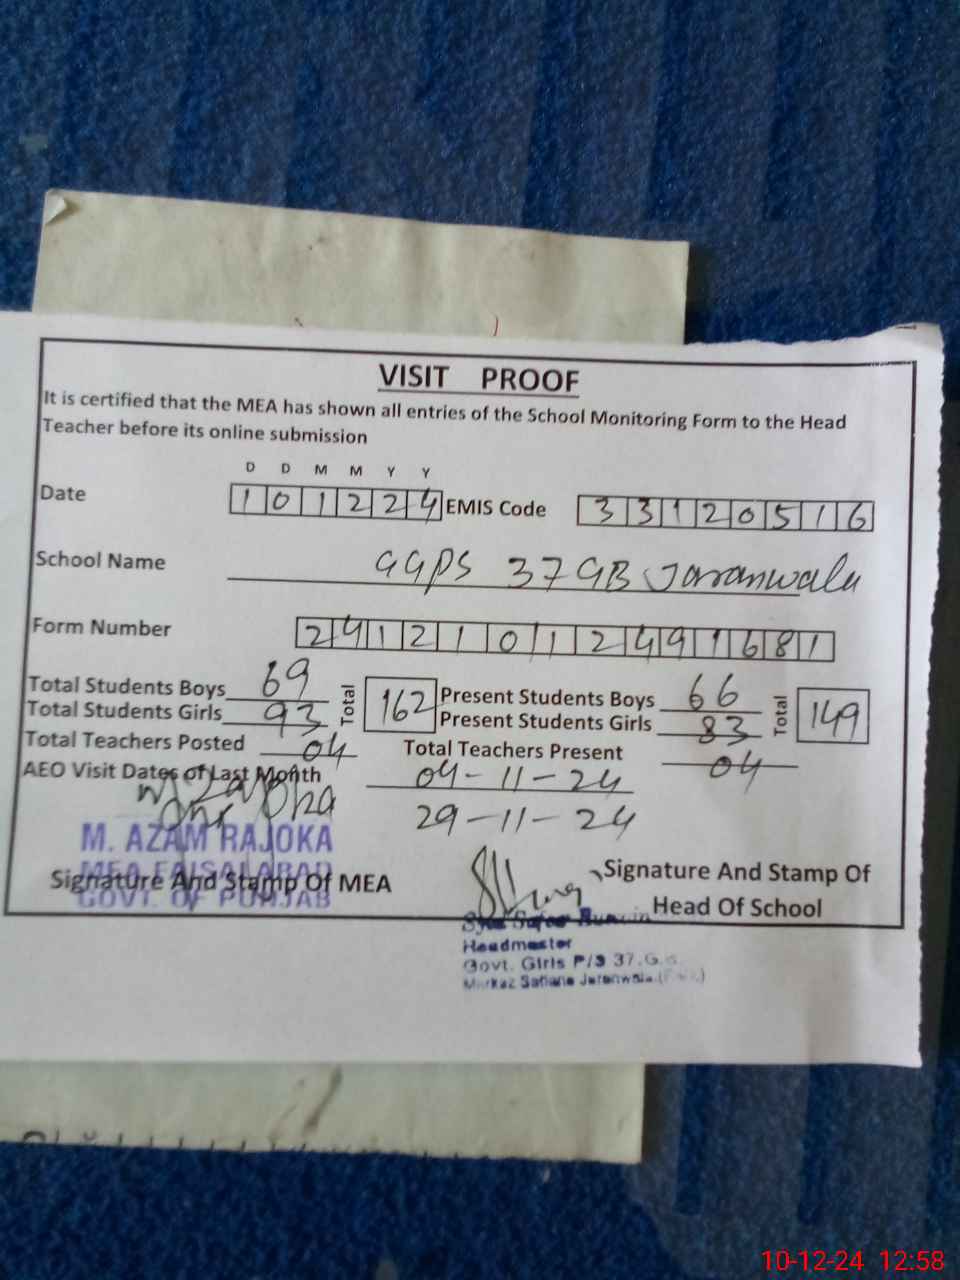 VISIT PROOF
It is certified that the MEA has shown all entries of the School Monitoring Form to the Head
Teacher before its online submission
D D M M Y Y
Date 1 0 1 2 2 4 EMIS Code 3 3 1 2 0 5 1 6
School Name GGPS 37 GB Jaranwala
Form Number 2 4 1 2 1 0 1 2 4 9 1 6 8 1
Total Students Boys 69 Total 162 Present Students Boys 66 Total 149
Total Students Girls 93 Present Students Girls 83
Total Teachers Posted 04 Total Teachers Present 04
AEO Visit Dates of Last Month 04-11-24
29-11-24
M. AZAM RAJOKA
MEA FAISALABAD
GOVT. OF PUNJAB
Signature And Stamp Of MEA
Signature And Stamp Of
Head Of School
Headmaster
Govt. Girls P/S 37.G.
Markaz Jaranwala
10-12-24 12:58